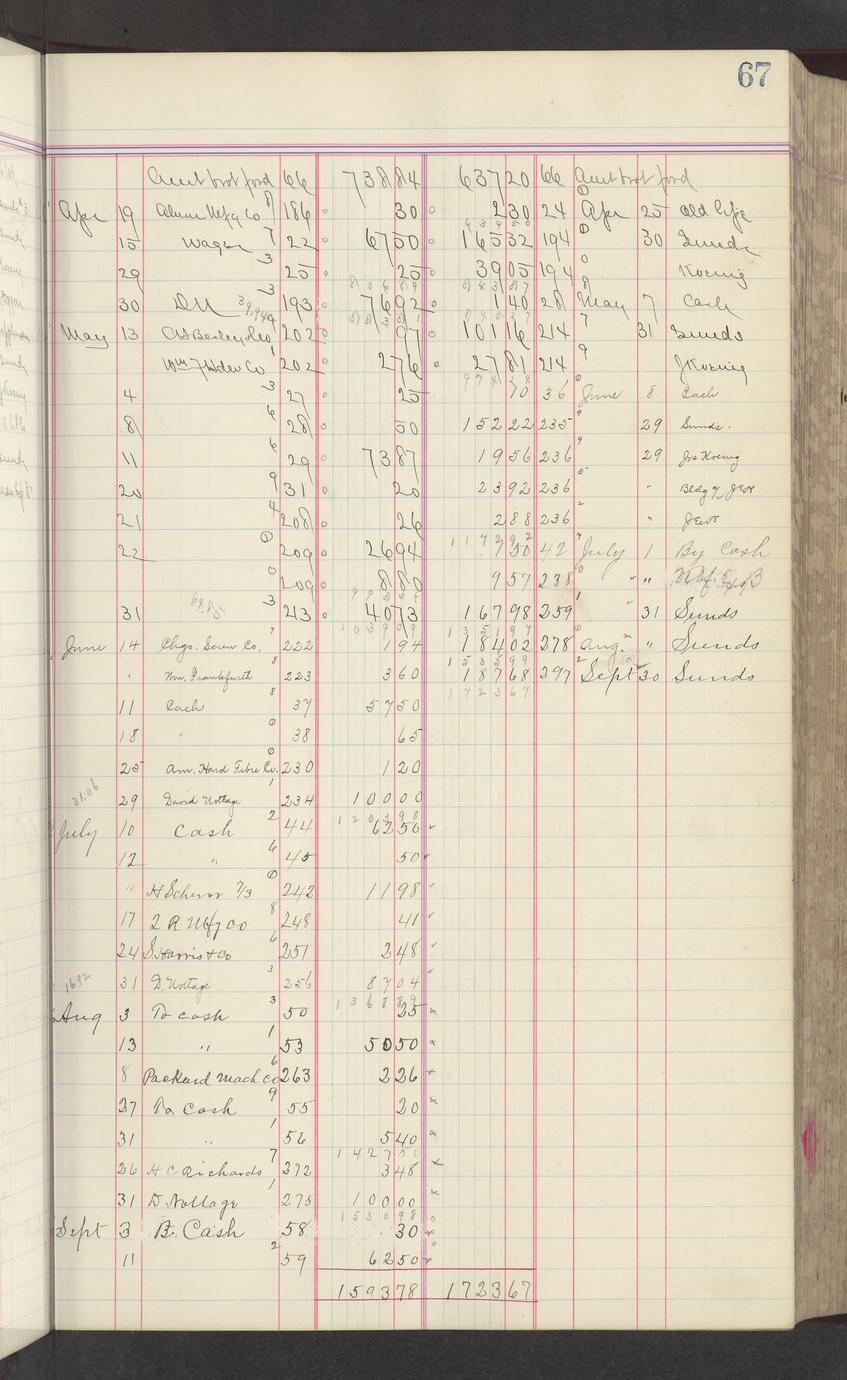 67
66 738 84 637 20 66
Apr 19 Mfg Co 186 30 2 30 24 Apr 25 Old
15 Wages 22 67 50 165 32 194 30 Sunds
29 25 25 39 05 194 Koenig
30 193 76 92 1 40 28 May 7 Cash
May 13 202 97 101 16 214 31 Sunds
Co 202 2 76 27 81 214 J Koenig
4 27 25 70 36 June 8 Cash
8 28 50 152 22 235 29 Sunds.
11 29 73 87 19 56 236 29 Jos Koenig
20 31 20 23 92 236 "
21 208 26 2 88 236 "
22 209 26 94 7 50 42 July 1 By Cash
209 8 80 9 57 238 "
31 43 40 73 167 98 259 31 Sunds
June 14 Chgo. Screw Co. 222 1 94 184 02 278 Aug. " Sunds
" Wm. Frankfurth 223 3 60 187 68 297 Sept 30 Sunds
11 Cash 37 57 50 1723 67
18 " 38 65
25 Am. Hard Fibre Co. 230 1 20
31.06
29 David Nottage 234 100 00
1203 98
July 10 Cash 44 62 50
12 " 45 50
" 7/3 242 11 98
17 2 R Mfg Co 248 41
24 S. Harris & Co 251 2 48
1692 31 D. Nottage 256 87 04
1368 89
Aug 3 To Cash 50 25
13 " 53 50 50
8 Packard Mach Co 263 2 26
27 To Cash 55 20
31 " 56 5 40
1427 50
26 H C Richards 272 3 48
31 D Nottage 275 100 00
1530 98
Sept 3 Cash 58 30
11 59 62 50
1593 78 1723 67